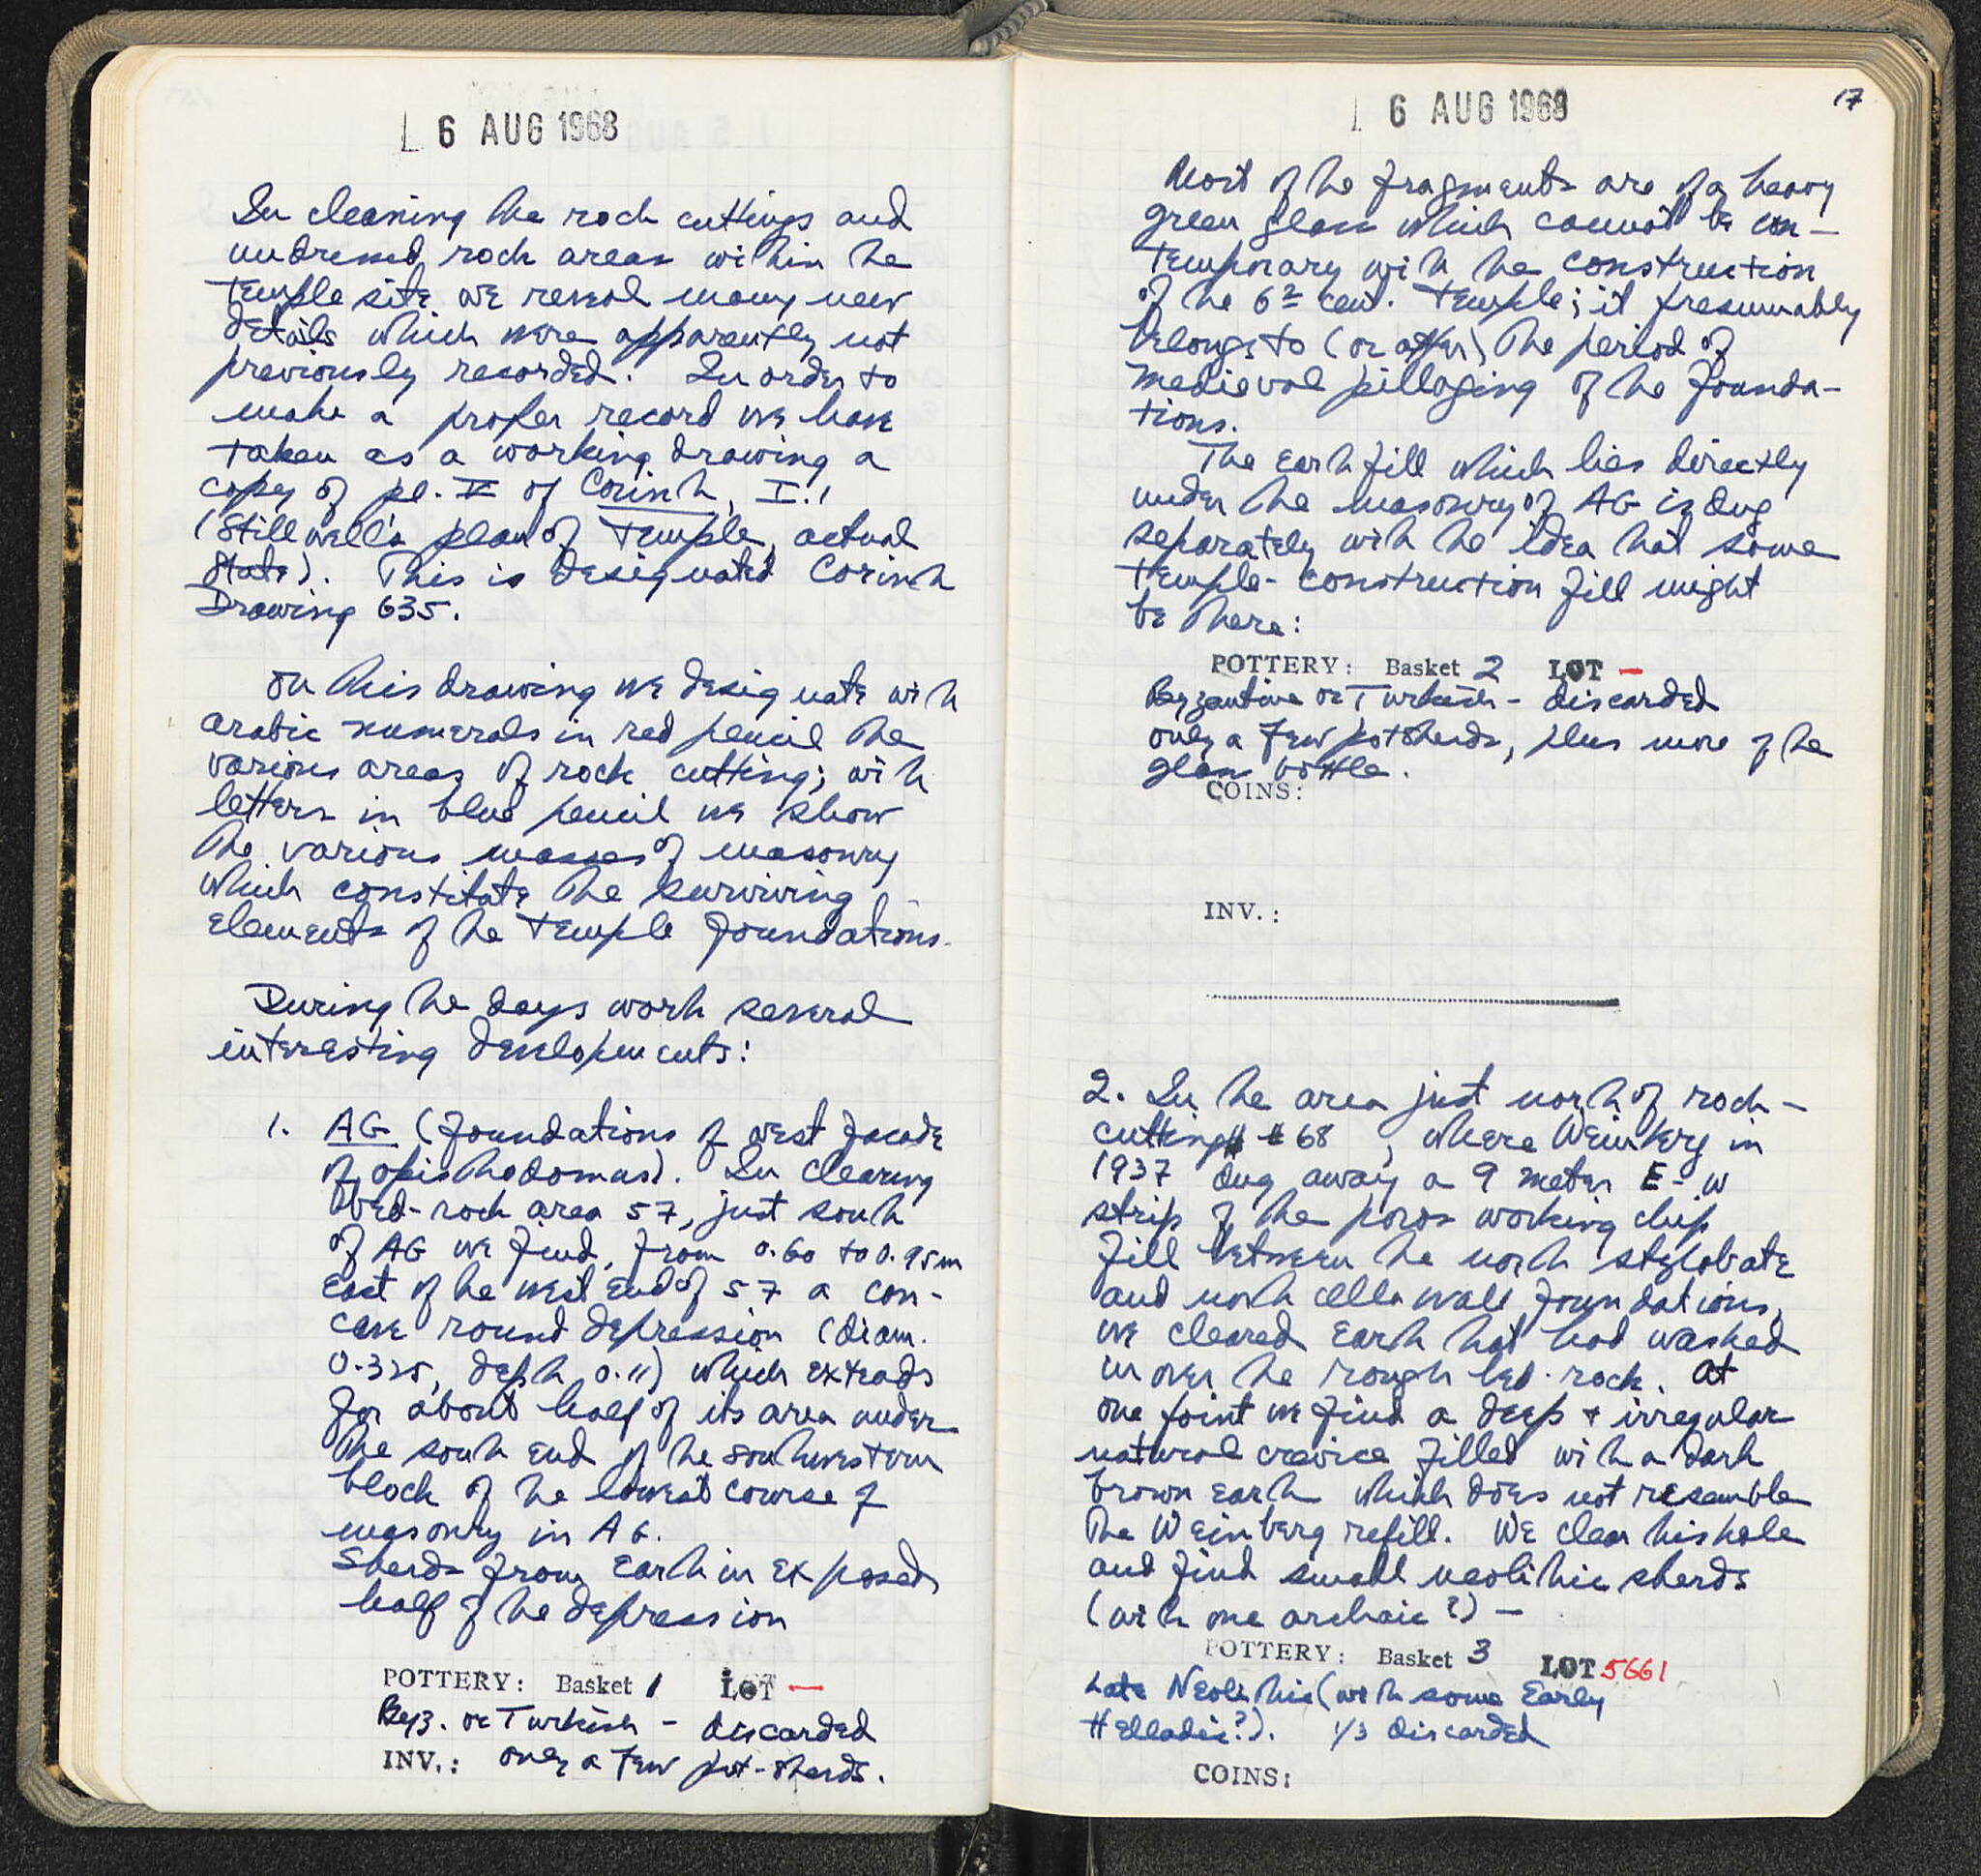 6 AUG 1968
In cleaning the rock cuttings and
undressed rock areas within the
temple site we reveal many new
details which were apparently not
previously recorded. In order to
make a proper record we have
taken as a working drawing a
copy of pl. V of Corinth, I.1
(Stillwell's plan of temple, actual
state). This is designated Corinth
Drawing 635.
On this drawing we designate with
arabic numerals in red pencil the
various areas of rock cutting; with
letters in blue pencil we show
the various masses of masonry
which constitute the surviving
elements of the temple foundations.
During the days work several
interesting developments:
1. AG (foundations of west facade
of opisthodomus). In clearing
bed-rock area 57, just south
of AG we find, from 0.60 to 0.95m
east of the west end of 57 a con-
cave round depression (diam.
0.325, depth 0.11) which extends
for about half of its area under
the south end of the southwestern
block of the lowest course of
masonry in AG.
Sherds from earth in exposed
half of the depression
POTTERY: Basket 1 LOT —
Byz. or Turkish - discarded
INV.: only a few pot-sherds.
6 AUG 1968
17
Most of the fragments are of a heavy
green glass which cannot be con-
temporary with the construction
of the 6th cent. temple; it presumably
belongs to (or after) the period of
medieval pillaging of the founda-
tions.
The earth fill which lies directly
under the masonry of AG is dug
separately with the idea that some
temple-construction fill might
be there:
POTTERY: Basket 2 LOT —
Byzantine or Turkish - discarded
only a few potsherds, plus more of the
glass bottle.
COINS:
INV.:
2. In the area just north of rock-
cutting # 68, where Weinberg in
1937 dug away a 9 meter E-W
strip of the poros working chip
fill between the north stylobate
and north cella wall foundations,
we cleared earth that had washed
in over the rough bed-rock. At
one point we find a deep + irregular
natural crevice filled with a dark
brown earth which does not resemble
the Weinberg refill. We clear this hole
and find small neolithic sherds
(with one archaic?) —
POTTERY: Basket 3 LOT 5661
Late Neolithic (with some Early
Helladic?). 1/3 discarded
COINS: